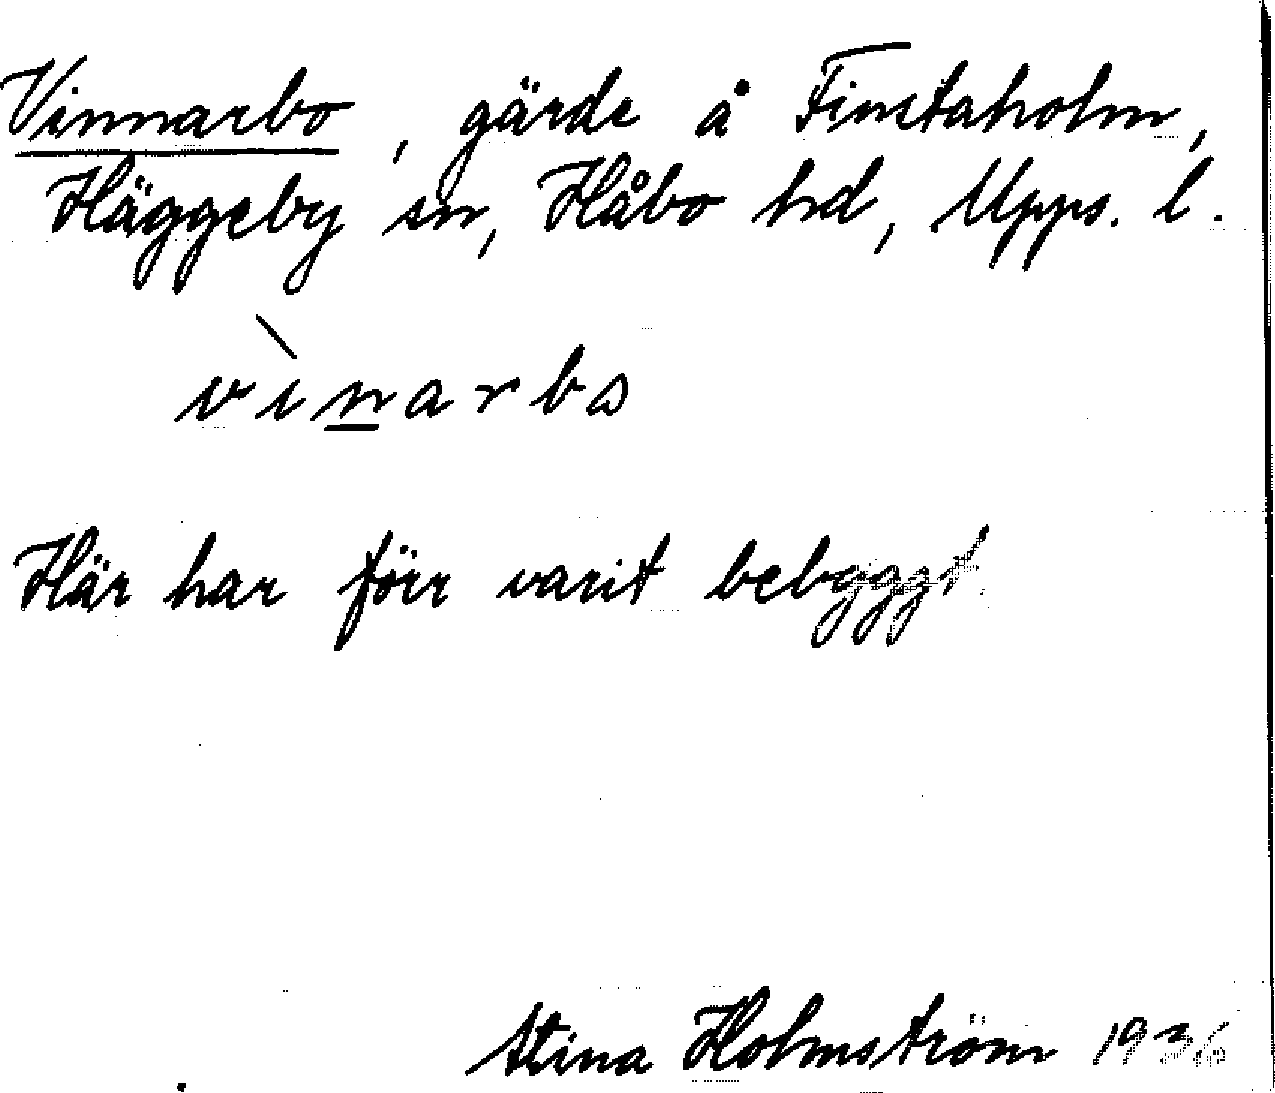 Vinnarbo, gärde å Finstaholm,
Häggeby sn, Håbo hd, Upps. l.
vìn̲arbɷ
Här har förr varit bebyggt
Stina Holmström 1936